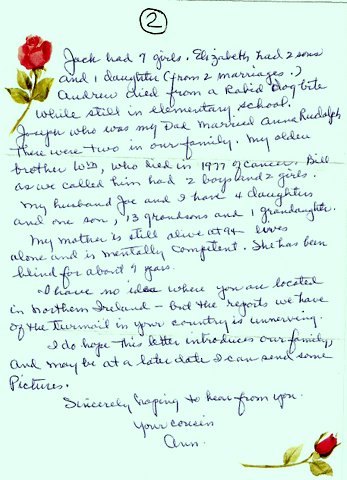 2
Jack had 7 girls. Elizabeth had 2 sons
and 1 daughter (from 2 marriages.)
Andrew died from a Rabid dog bite
while still in elementary school.
Joseph who was my Dad married Anna Rudolph
There were two in our family. My older
brother Wm, who died in 1977 of cancer. Bill
as we called him had 2 boys and 2 girls.
My husband Joe and I have 4 daughters
and one son, 13 grandsons and 1 grandaughter.
My mother is still alive at 94 lives
alone and is mentally competent. She has been
blind for about 9 years.
I have no idea where you are located
in Northern Ireland - but the reports we have
of the turmail in your country is unnerving.
I do hope this letter introduces our family,
and may be at a later date I can send some
Pictures.
Sincerely hoping to hear from you.
Your cousin
Ann.